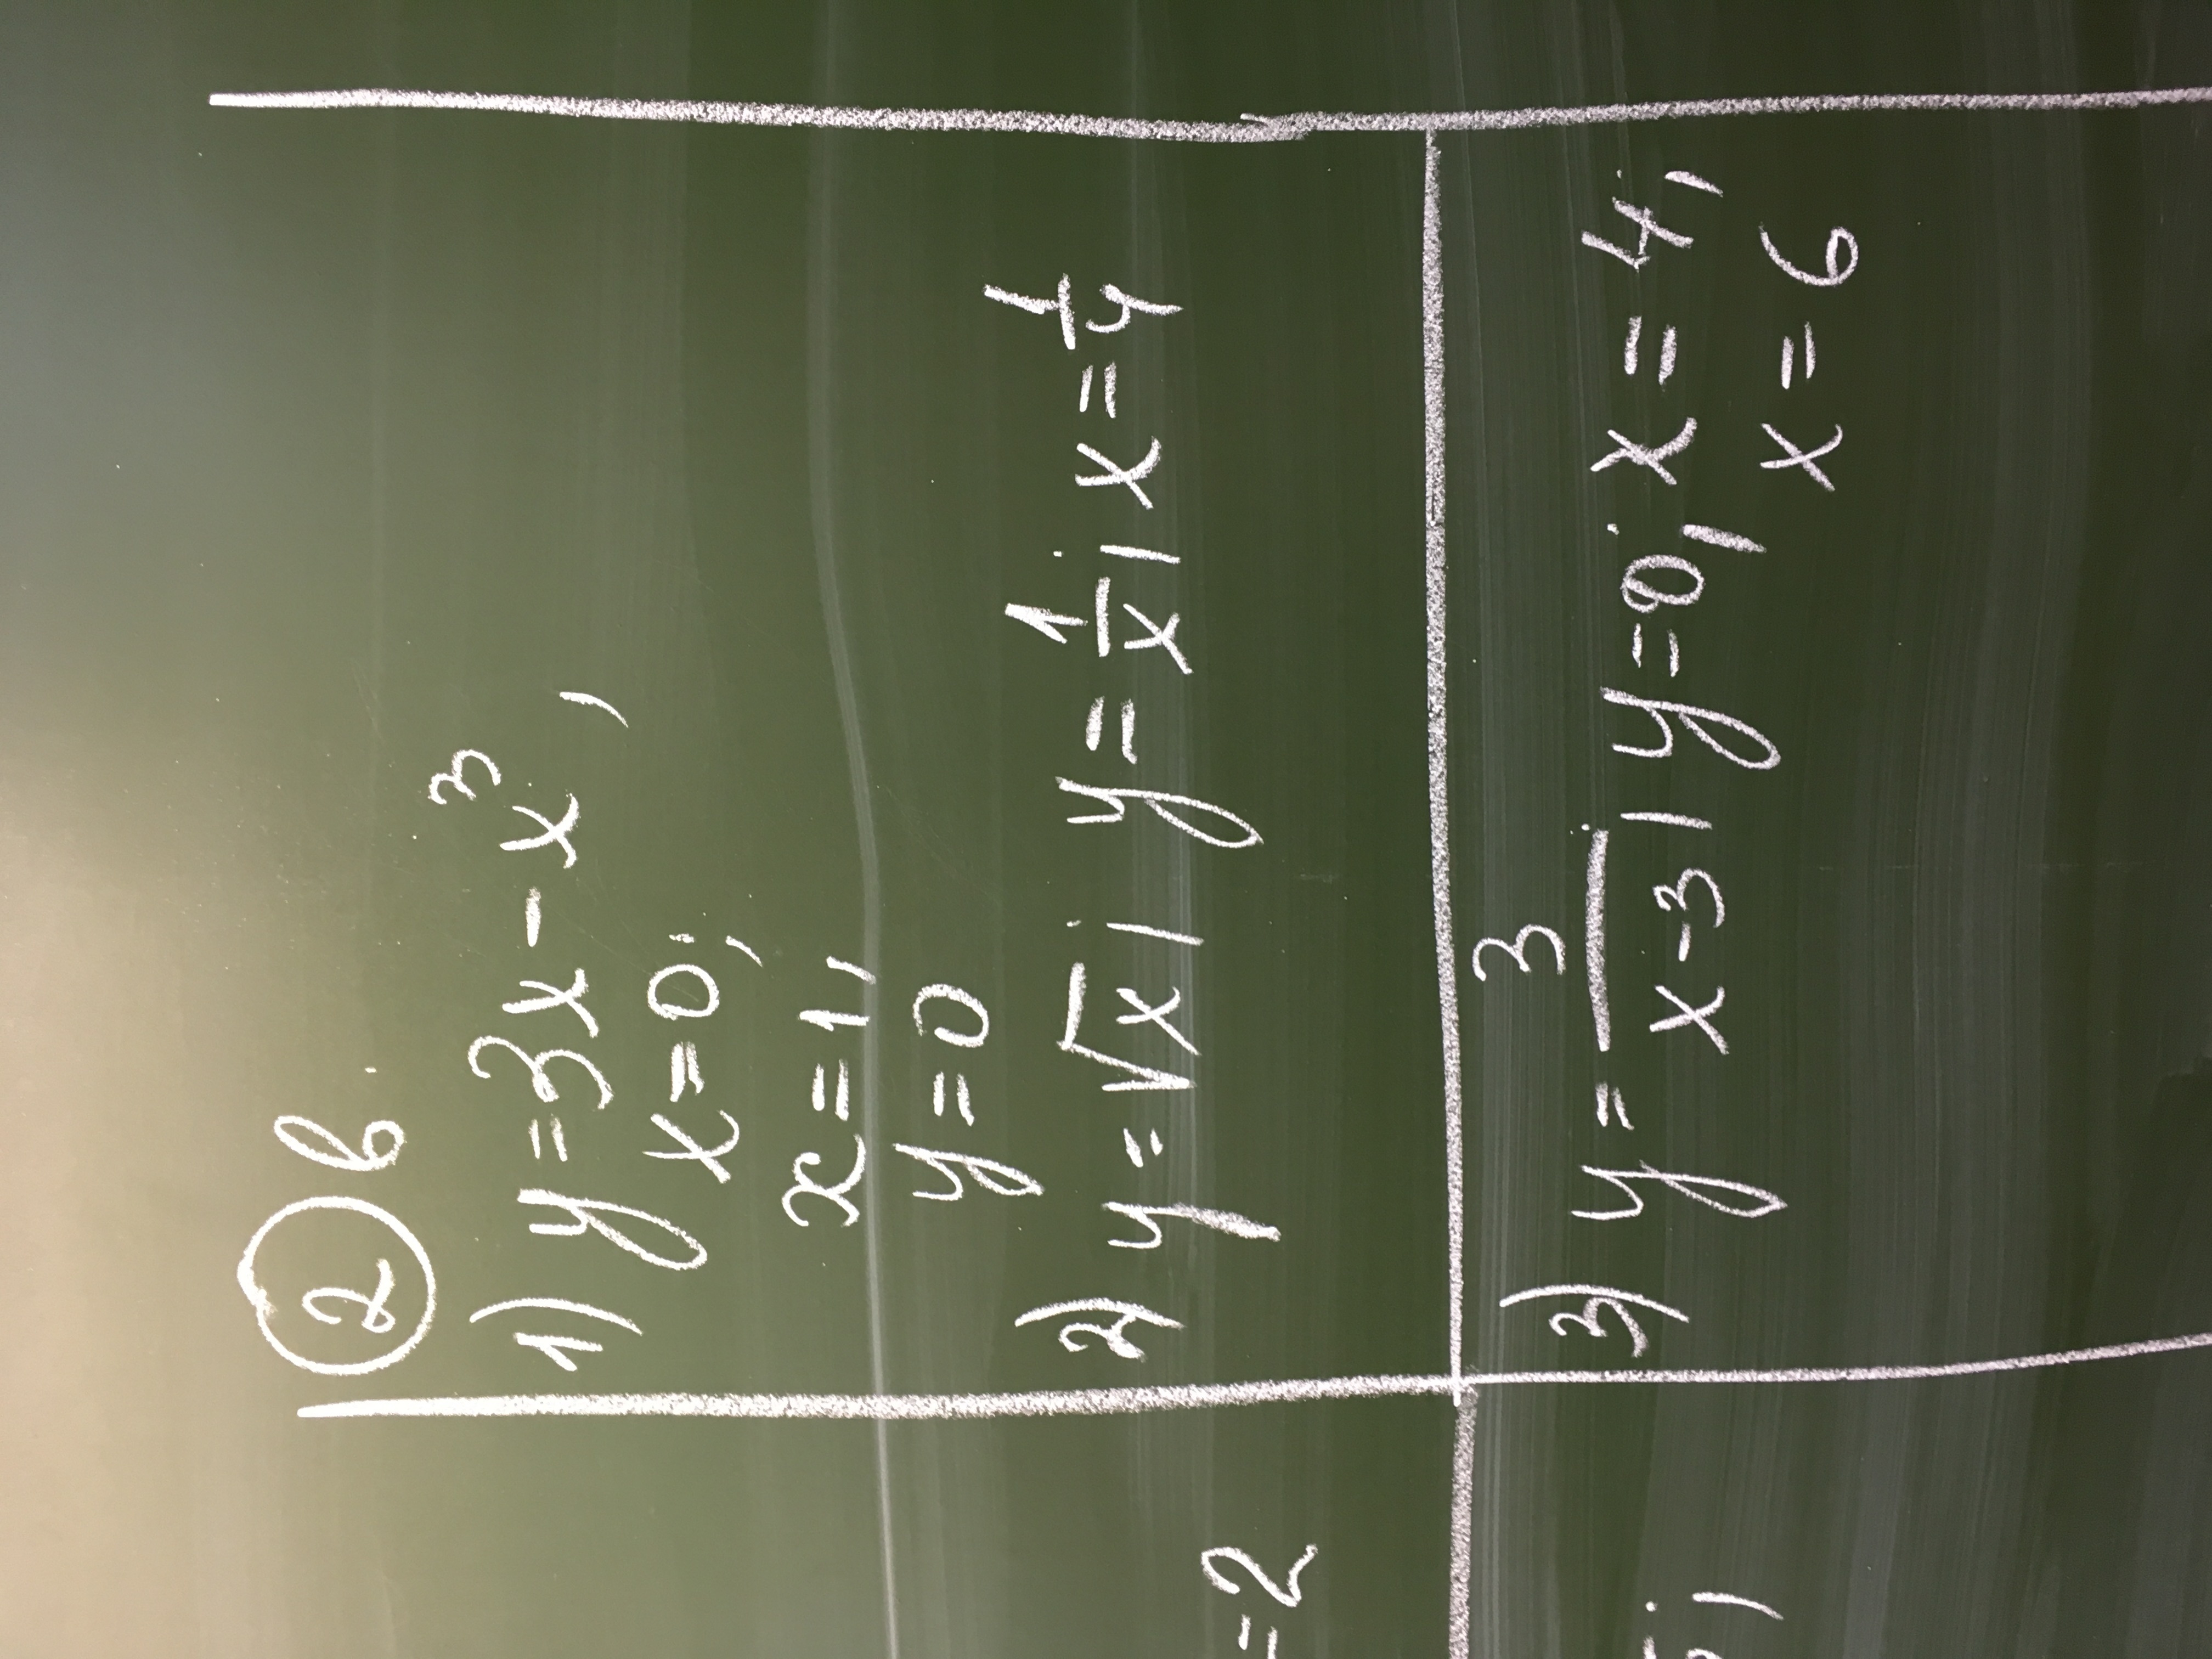 ② в.
1) y = 3x - x³,
x = 0;
x = 1;
y = 0
2) y = √x; y = 1/x; x = 1/4
3) y = 3/(x-3); y = 0; x = 4;
x = 6
= 2